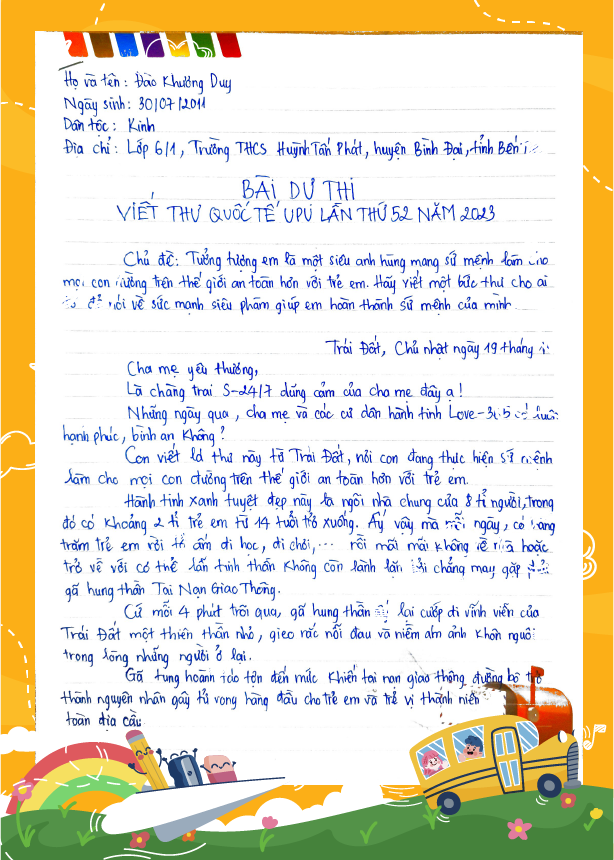 Họ và tên: Đào Khương Duy
Ngày sinh: 30/07/2011
Dân tộc: Kinh
Địa chỉ: Lớp 6/1, Trường THCS Huỳnh Tấn Phát, huyện Bình Đại, tỉnh Bến
BÀI DỰ THI
VIẾT THƯ QUỐC TẾ UPU LẦN THỨ 52 NĂM 2023
Chủ đề: Tưởng tượng em là một siêu anh hùng mang sứ mệnh làm cho
mọi con đường trên thế giới an toàn hơn với trẻ em. Hãy viết một bức thư cho ai
để nói về sức mạnh siêu phàm giúp em hoàn thành sứ mệnh của mình
Trái Đất, Chủ nhật ngày 19 tháng
Cha mẹ yêu thương,
Là chàng trai S-24/7 dũng cảm của cha mẹ đây ạ!
Những ngày qua, cha mẹ và các cư dân hành tinh Love-365 có luôn
hạnh phúc, bình an không?
Con viết lá thư này từ Trái Đất, nơi con đang thực hiện sứ mệnh
làm cho mọi con đường trên thế giới an toàn hơn với trẻ em.
Hành tinh xanh tuyệt đẹp này là ngôi nhà chung của 8 tỉ người, trong
đó có khoảng 2 tỉ trẻ em từ 14 tuổi trở xuống. Ấy vậy mà mỗi ngày, có hàng
trăm trẻ em rời tổ ấm đi học, đi chơi,... rồi mãi mãi không về nữa hoặc
trở về với cơ thể lẫn tinh thần không còn lành lặn bởi chẳng may gặp phải
gã hung thần Tai Nạn Giao Thông.
Cứ mỗi 4 phút trôi qua, gã hung thần ấy lại cướp đi vĩnh viễn của
Trái Đất một thiên thần nhỏ, gieo rắc nỗi đau và niềm ám ảnh khôn nguôi
trong lòng những người ở lại.
Gã tung hoành táo tợn đến mức khiến tai nạn giao thông đường bộ trở
thành nguyên nhân gây tử vong hàng đầu cho trẻ em và trẻ vị thành niên
toàn địa cầu